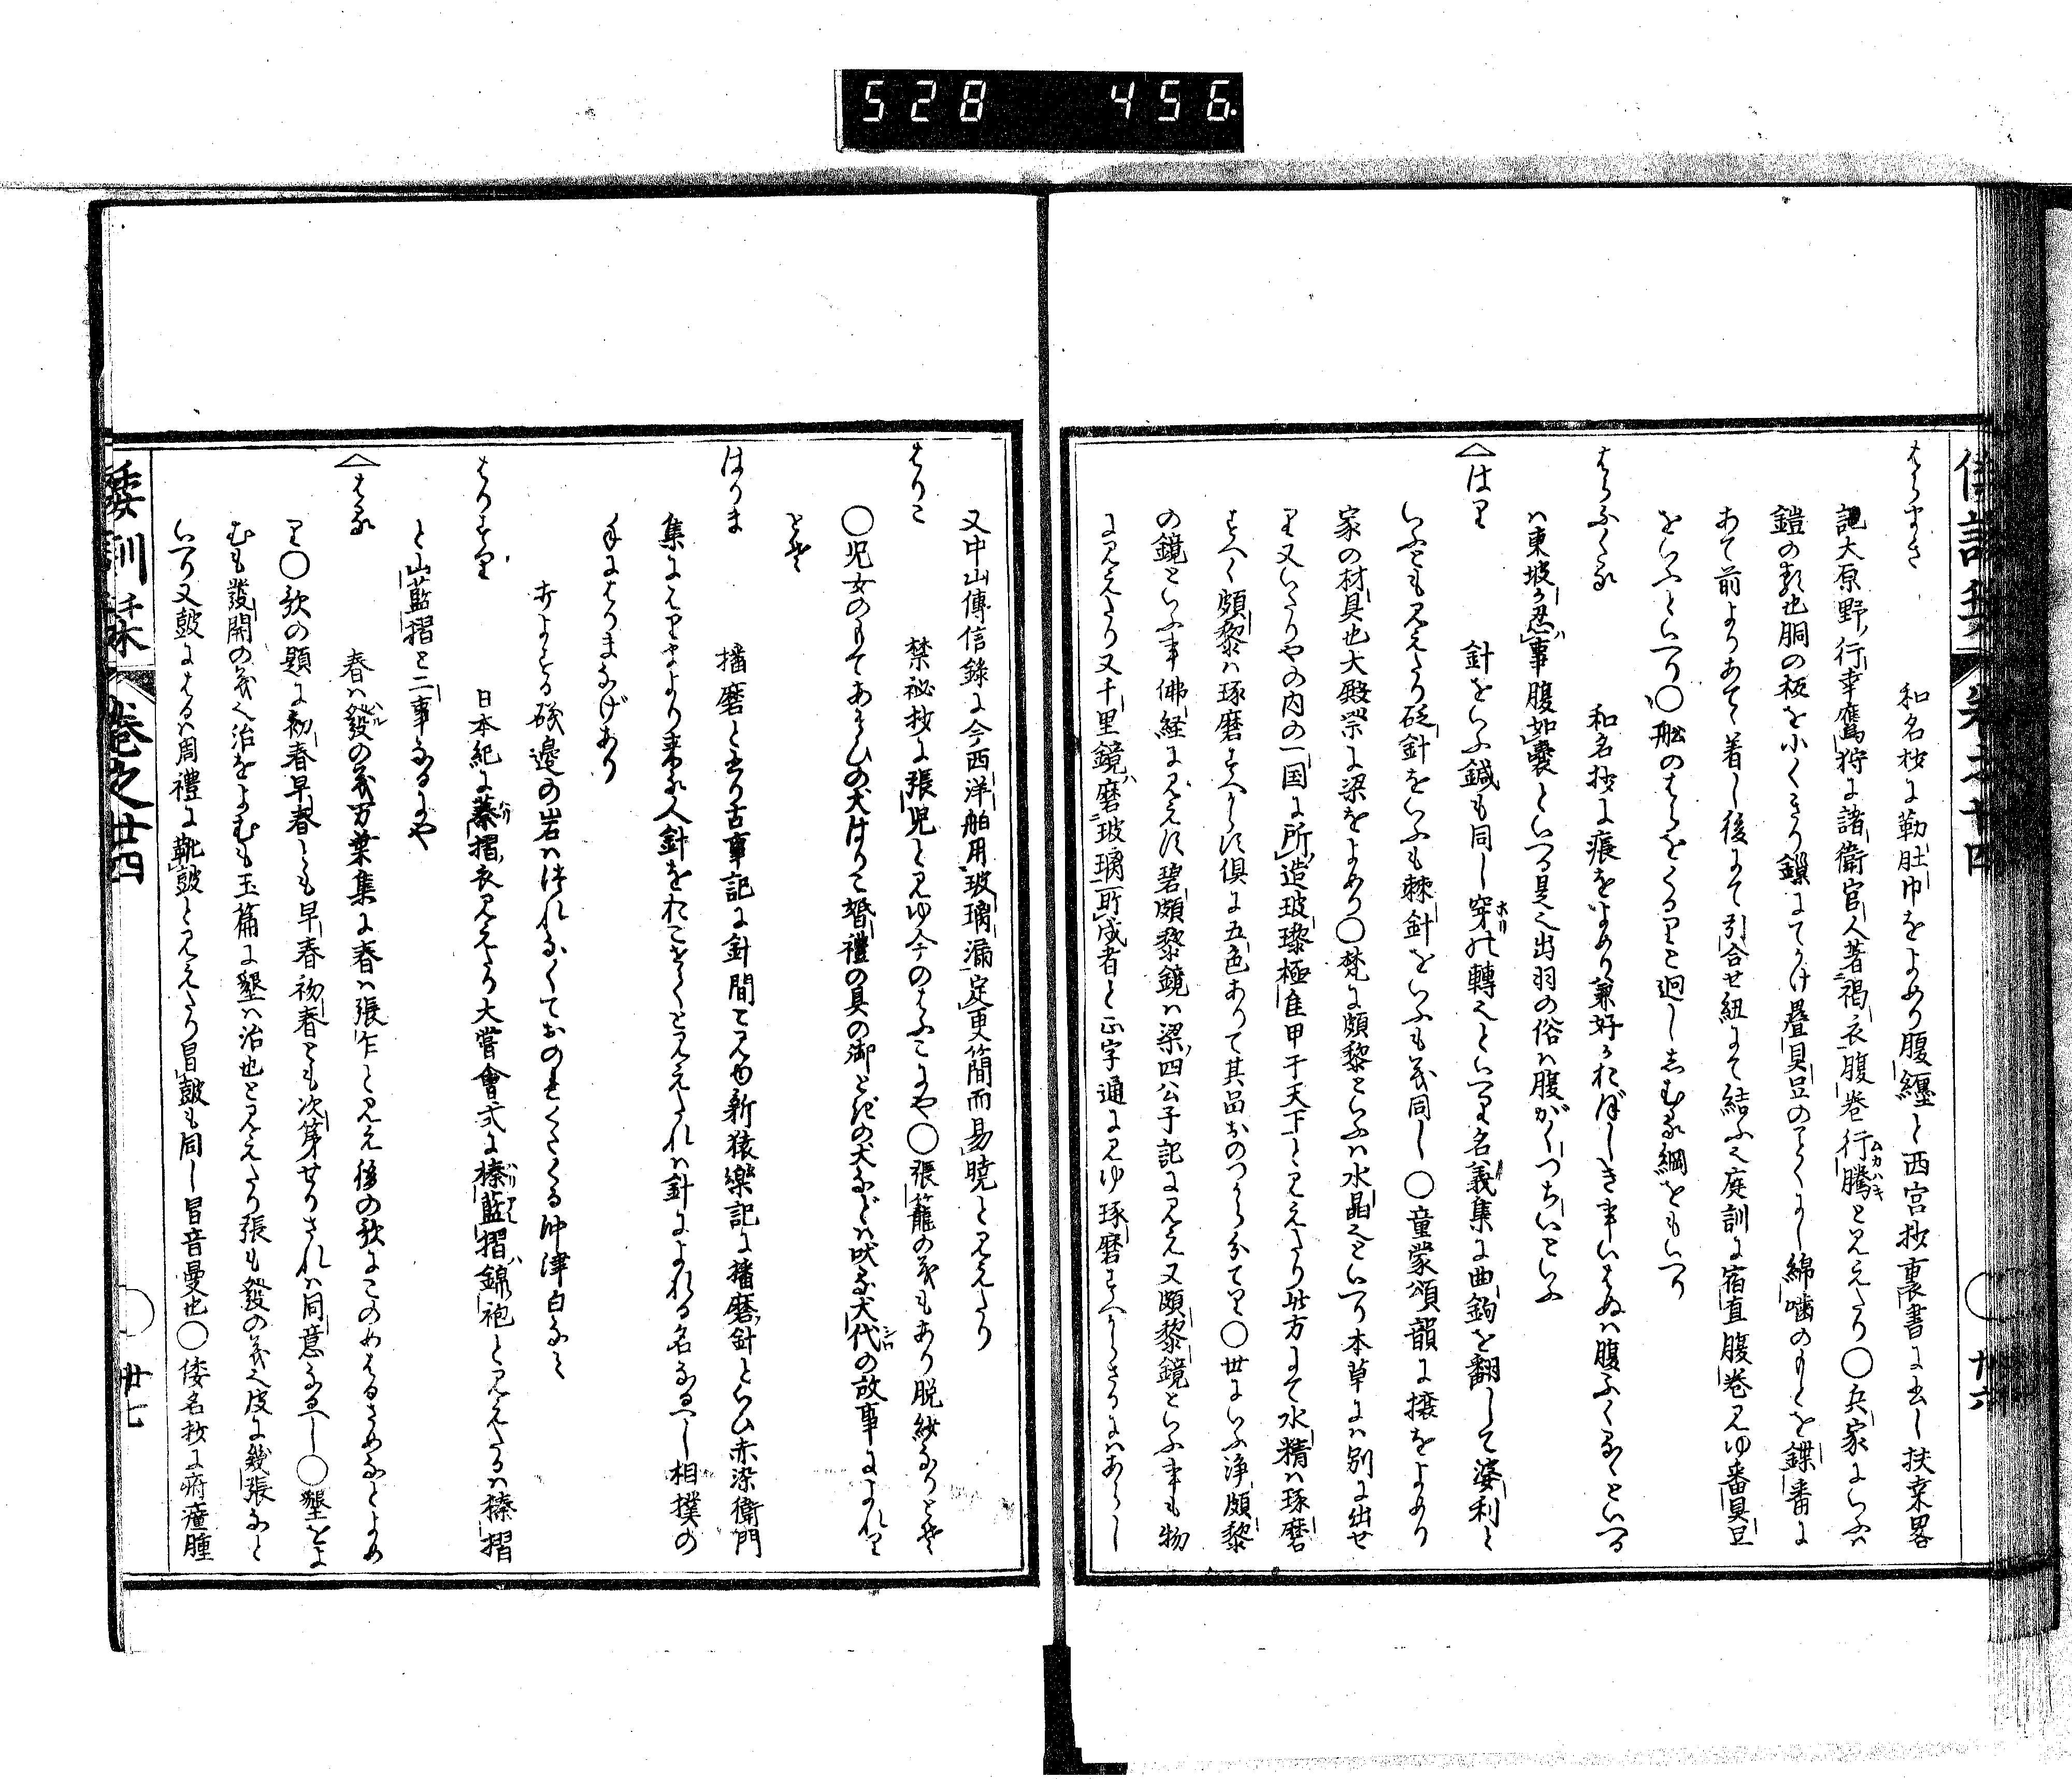 528 456
倭訓栞 巻之廿四 廿六
はらまき 和名抄に勒肚巾をよめり腹纏と西宮抄裏書に出し扶桑畧
記大原野行幸鷹狩に諸衛官人著褐衣腹巻行騰ムカハキと見えたり〇兵家にいふは
鎧の類也胴の板を小くきり鏁にてつけ疊具足のことくにし綿噛のもとを鏁番に
あて前よりあてゝ着し後にて引合せ紐にて結ふ也庭訓に宿直腹巻見ゆ番具足
をいふといへり〇舩のはらをくゝりと廻ししむる綱をもいへり
はらふくる 和名抄に痕をよめり兼好かおほしき事いはぬは腹ふくるゝといへる
は東坡か忍事腹如嚢といへる是也出羽の俗は腹がくつちいといふ
はり 針をいふ鍼も同し穿ホリの轉也といへり名義集に曲鉤を翻して婆利と
いふとも見えたり砭針をいふも棘針をいふも義同し〇童蒙頌韻に攘をよめり
家の材具也大殿祭に梁をよめり〇梵に頗黎といふは水晶也といへり本草には別に出せ
り又いたりやの内の一国に所造玻璨極佳甲于天下と見えたり此方にて水精は琢磨
すへく頗黎は琢磨すへからす倶に五色ありて其品おのつから分てり〇世にいふ浄頗黎
の鏡といふ事佛経に見えす碧頗黎鏡は梁四公子記に見え又頗黎鏡といふ事も物
に見えたり又千里鏡ハ磨玻璃所成者と正字通に見ゆ琢磨すへからさるにはあらし
又中山傳信録に今西洋舶用玻璃漏定更簡而易曉と見えたり
はりこ 禁祕抄に張児と見ゆ今のはふこにや〇張籠の義もあり脱紗なりとそ
〇児女のもてあそひの犬はりこ婚禮の具の御とぎの犬などは吠る犬代シロの故事によれり
とそ
はりま 播磨と書り古事記に針間と見ゆ新猿樂記に播磨針といひ赤染衛門
集にはりまより来る人針をおこせてと見えたれは針によれる名なるへし相撲の
手にはりまなげあり
岸よする磯邊の岩はつれなくておのれくたくる沖津白なみ
はりすり 日本紀に蓁ハリ摺衣見えたり大嘗會式に榛ハリ藍摺錦袍と見えたるは榛摺
と山藍摺と二事なるにや
はる 春は發ハルの義万葉集に春は張乍と見え後の歌にこのめはるさめなとよめ
り〇歌の題に初春早春とも早春初春とも次第せりされは同意なるへし〇墾をよ
むも發開の義也治をよむも玉篇に墾は治也と見えたり張も發の義也皮に幾張なと
いへり又鼓にはるは周禮に鞔鼓と見えたり冒鼓も同し冒音曼也〇倭名抄に疛瘇腫
倭訓栞 巻之廿四 廿七